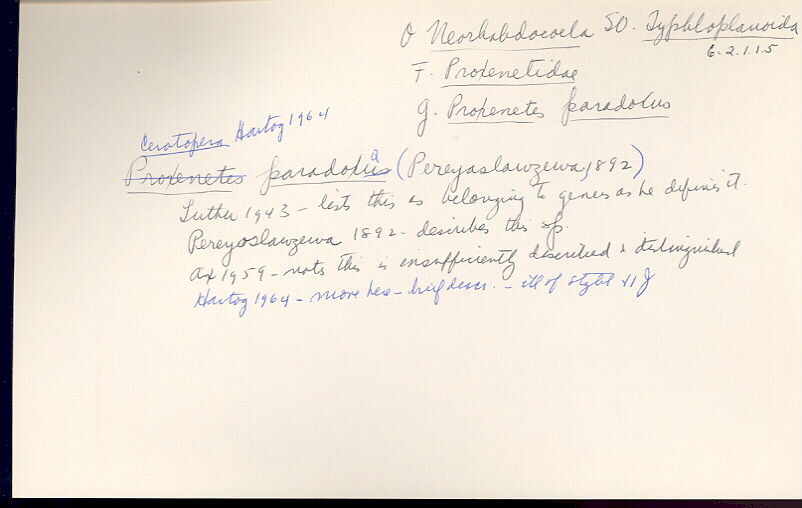 O Neorhabdocoela SO. Typhloplanoida
6.2.1.1.5
F. Proxenetidae
g. Proxenetes paradoxus
Ceratopera Hartog 1964
Proxenetes paradoxus a (Pereyaslawzewa, 1892)
Luther 1943 - lists this as belonging to genus as he defines it.
Pereyoslawzewa 1892 - describes this sp.
Ax 1959 - notes this is insufficiently described & distinguished
Hartog 1964 - move here - brief descr. - ill of stylet